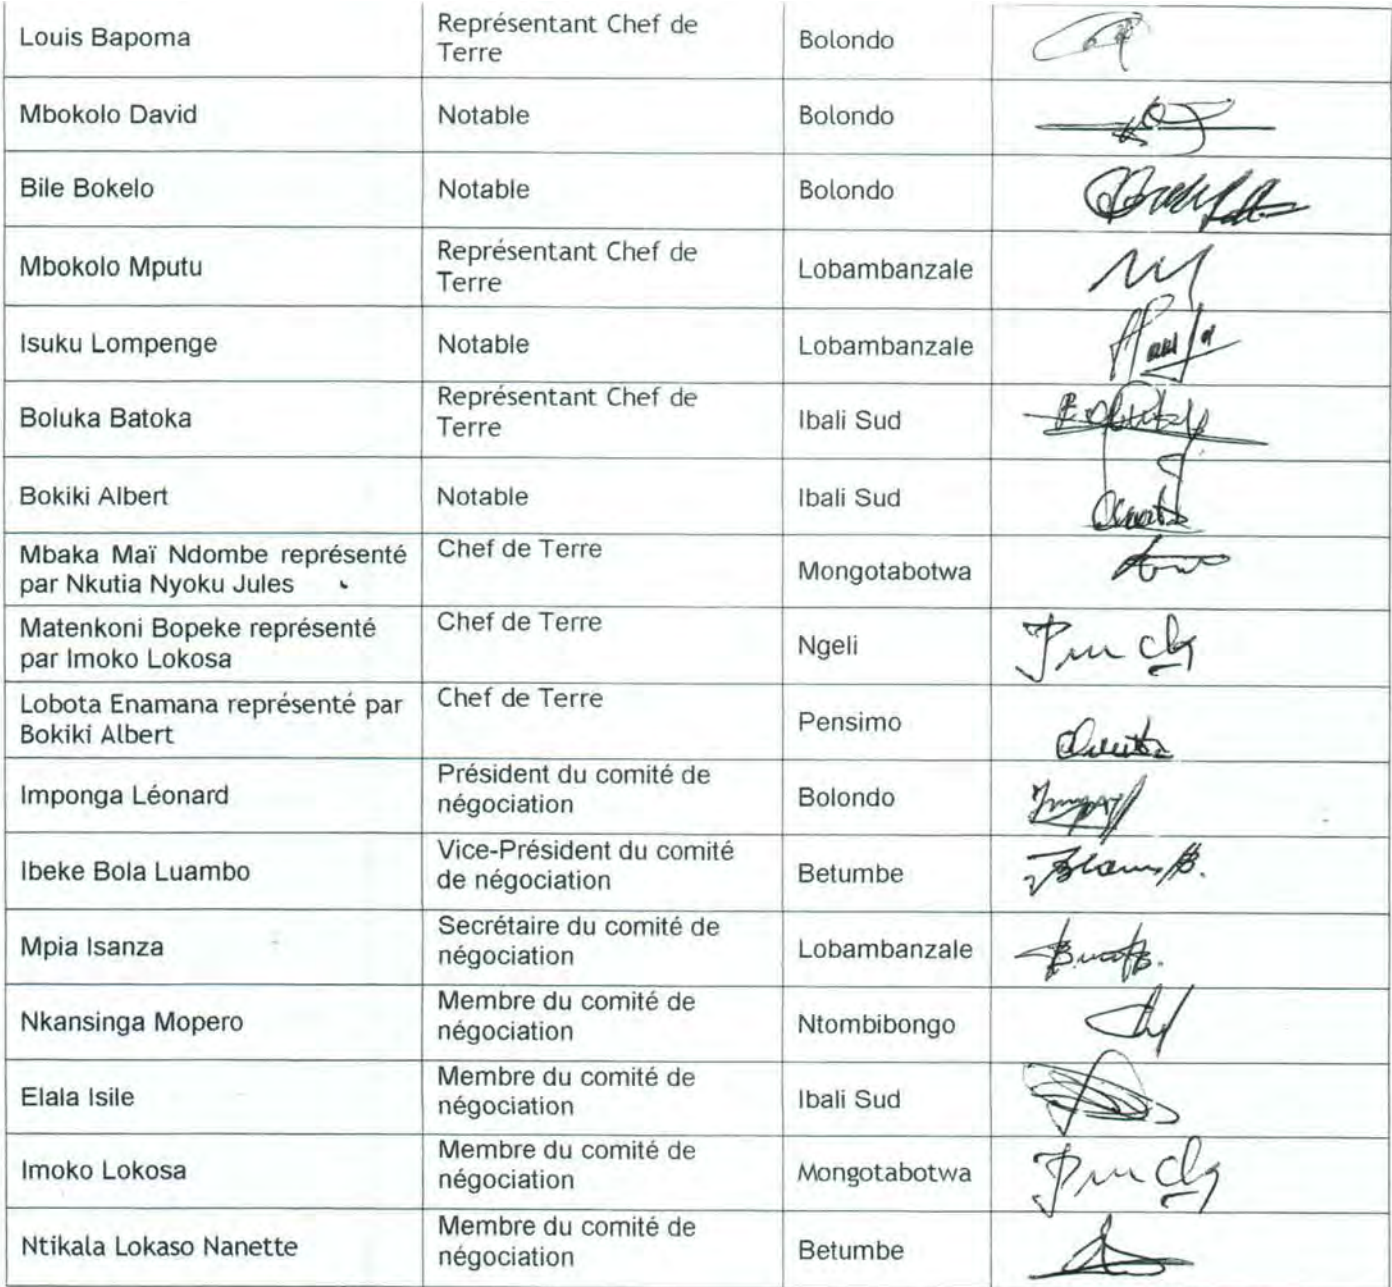 Louis Bapoma
Représentant Chef de
Terre
Bolondo
Mbokolo David
Notable
Bolondo
Bile Bokelo
Notable
Bolondo
Mbokolo Mputu
Représentant Chef de
Terre
Lobambanzale
Isuku Lompenge
Notable
Lobambanzale
Boluka Batoka
Représentant Chef de
Terre
Ibali Sud
Bokiki Albert
Notable
Ibali Sud
Mbaka Maï Ndombe représenté
par Nkutia Nyoku Jules
Chef de Terre
Mongotabotwa
Matenkoni Bopeke représenté
par Imoko Lokosa
Chef de Terre
Ngeli
Lobota Enamana représenté par
Bokiki Albert
Chef de Terre
Pensimo
Imponga Léonard
Président du comité de
négociation
Bolondo
Ibeke Bola Luambo
Vice-Président du comité
de négociation
Betumbe
Mpia Isanza
Secrétaire du comité de
négociation
Lobambanzale
Nkansinga Mopero
Membre du comité de
négociation
Ntombibongo
Elala Isile
Membre du comité de
négociation
Ibali Sud
Imoko Lokosa
Membre du comité de
négociation
Mongotabotwa
Ntikala Lokaso Nanette
Membre du comité de
négociation
Betumbe